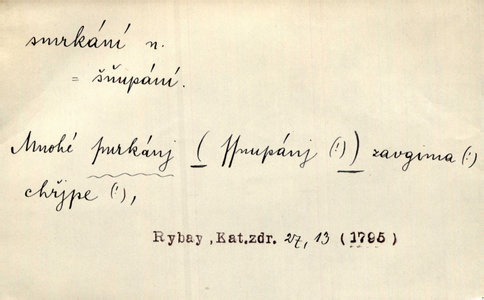 smrkání n.
= šňupání.
Mnohé smrkánj (ssnupánj (!)) zavgima (!)
chřjpe (!),
Rybay, Kat.zdr. 27, 13 (1795)